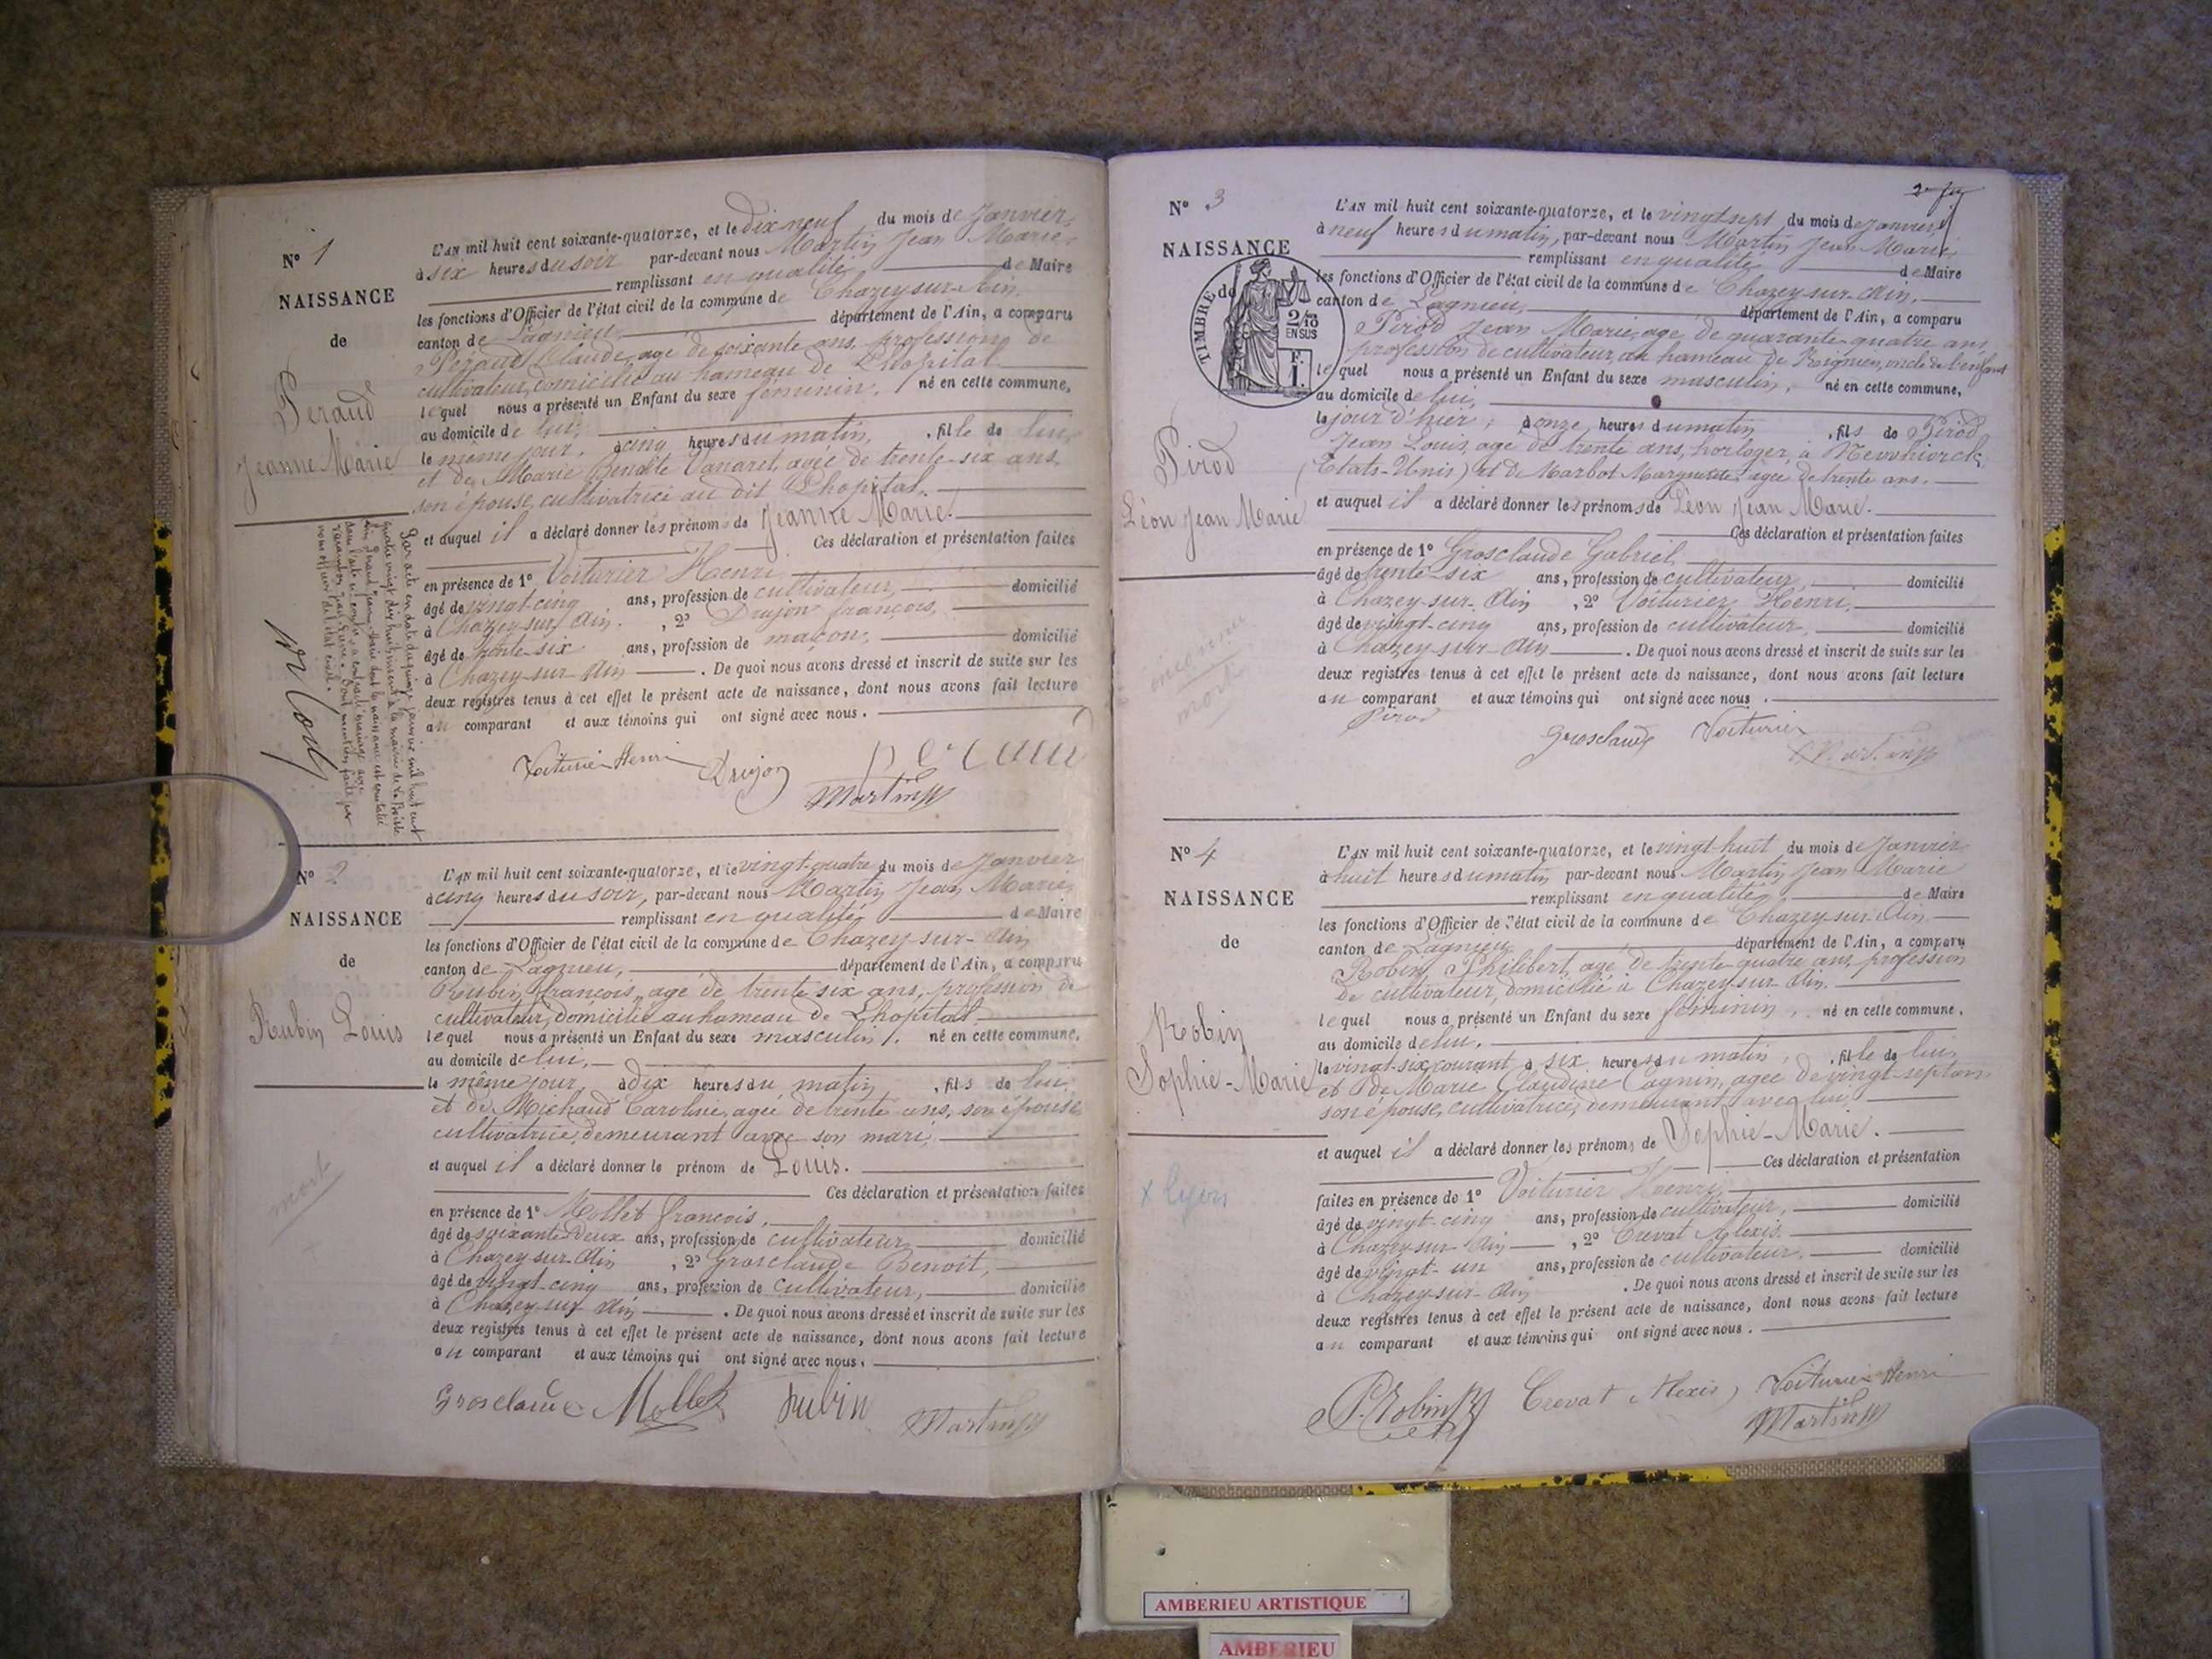 N° 1
NAISSANCE
de
Peraud
Jeanne Marie
L'AN mil huit cent soixante-quatorze, et le dix neuf du mois de Janvier
à six heures du soir par-devant nous Martin Jean Marie
remplissant en qualité de Maire
les fonctions d'Officier de l'état civil de la commune de Chazey-sur-Ain
canton de Lagnieu département de l'Ain, a comparu
Peraud Claude, agé de soixante ans, profession de
cultivateur, domicilié au hameau de Lhopital
lequel nous a présenté un Enfant du sexe féminin, né en cette commune,
au domicile de lui,
le même jour, à cinq heures du matin, fille de lui
et de Marie Benoite Vanaret, agée de trente-six ans
son épouse, cultivatrice au dit Lhopital.
et auquel il a déclaré donner les prénoms de Jeanne Marie.
Ces déclaration et présentation faites
en présence de 1° Voiturier Henri
âgé de vingt-cinq ans, profession de cultivateur, domicilié
à Chazey-sur-Ain. , 2° Drujon françois,
âgé de trente-six ans, profession de maçon, domicilié
à Chazey-sur-Ain . De quoi nous avons dressé et inscrit de suite sur les
deux registres tenus à cet effet le présent acte de naissance, dont nous avons fait lecture
au comparant et aux témoins qui ont signé avec nous.
Voiturier Henri Drujon peraud
Martin
N° 2
NAISSANCE
de
Rubin Louis
mort
L'AN mil huit cent soixante-quatorze, et le vingt-quatre du mois de Janvier
à cinq heures du soir, par-devant nous Martin Jean Marie
remplissant en qualité de Maire
les fonctions d'Officier de l'état civil de la commune de Chazey-sur-Ain
canton de Lagnieu, département de l'Ain, a comparu
Rubin françois, agé de trente six ans, profession de
cultivateur, domicilié au hameau de Lhopital
lequel nous a présenté un Enfant du sexe masculin, né en cette commune,
au domicile de lui,
le même jour, à dix heures du matin, fils de lui
et de Michaud Caroline, agée de trente ans, son épouse
cultivatrice, demeurant avec son mari,
et auquel il a déclaré donner le prénom de Louis.
Ces déclaration et présentation faites
en présence de 1° Mollet françois,
âgé de soixante deux ans, profession de cultivateur, domicilié
à Chazey-sur-Ain , 2° Grosclaude Benoit,
âgé de vingt-cinq ans, profession de cultivateur, domicilié
à Chazey sur Ain . De quoi nous avons dressé et inscrit de suite sur les
deux registres tenus à cet effet le présent acte de naissance, dont nous avons fait lecture
au comparant et aux témoins qui ont signé avec nous.
Grosclaude Mollet Rubin Martin
N° 3
NAISSANCE
de
TIMBRE
2/10
EN SUS
F.
1.
Pirod
Léon Jean Marie
inconnu
mort
L'AN mil huit cent soixante-quatorze, et le vingt sept du mois de Janvier
à neuf heures du matin, par-devant nous Martin Jean Marie
remplissant en qualité de Maire
les fonctions d'Officier de l'état civil de la commune de Chazey-sur-Ain,
canton de Lagnieu, département de l'Ain, a comparu
Pirod Jean Marie, agé de quarante-quatre ans,
profession de cultivateur, au hameau de Rignieu, oncle de l'enfant
lequel nous a présenté un Enfant du sexe masculin, né en cette commune,
au domicile de lui,
le jour d'hier, à onze heures du matin, fils de Pirod
Jean Louis, agé de trente ans, horloger, à Nevvhiorck
(Etats-Unis) et de Marbot Marguerite, agée de trente ans.
et auquel il a déclaré donner les prénoms de Léon Jean Marie.
Ces déclaration et présentation faites
en présence de 1° Grosclaude Gabriel
âgé de trente-six ans, profession de cultivateur, domicilié
à Chazey-sur-Ain , 2° Voiturier Henri,
âgé de vingt-cinq ans, profession de cultivateur, domicilié
à Chazey-sur-Ain . De quoi nous avons dressé et inscrit de suite sur les
deux registres tenus à cet effet le présent acte de naissance, dont nous avons fait lecture
au comparant et aux témoins qui ont signé avec nous.
Pirod Grosclaude Voiturier
Martin
N° 4
NAISSANCE
de
Robin
Sophie-Marie
x Lyon
L'AN mil huit cent soixante-quatorze, et le vingt-huit du mois de Janvier
à huit heures du matin par-devant nous Martin Jean Marie
remplissant en qualité de Maire
les fonctions d'Officier de l'état civil de la commune de Chazey-sur-Ain
canton de Lagnieu département de l'Ain, a comparu
Robin Philibert, agé de trente-quatre ans, profession
de cultivateur, domicilié à Chazey-sur-Ain.
lequel nous a présenté un Enfant du sexe féminin, né en cette commune,
au domicile de lui.
le vingt-six courant à six heures du matin, fille de lui
et de Marie Claudine Cagnin, agée de vingt-sept ans
son épouse, cultivatrice, demeurant avec lui,
et auquel il a déclaré donner les prénoms de Sophie-Marie.
Ces déclaration et présentation
faites en présence de 1° Voiturier Henri
âgé de vingt-cinq ans, profession de cultivateur, domicilié
à Chazey-sur-Ain , 2° Crevat Alexis
âgé de vingt-un ans, profession de cultivateur, domicilié
à Chazey-sur-Ain . De quoi nous avons dressé et inscrit de suite sur les
deux registres tenus à cet effet le présent acte de naissance, dont nous avons fait lecture
au comparant et aux témoins qui ont signé avec nous.
P. Robin Crevat Alexis Voiturier Henri
Martin
AMBERIEU ARTISTIQUE
AMBERIEU